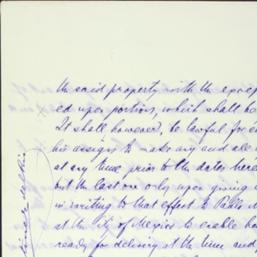 the said property with the excep
ed upon portion, which shall b
It shall however, be lawful for
his assigns to make any and all
at any time prior to the dates here
but the last one only upon giving
in writing to that effect to Pablo
at the City of Mexico to enable h
ready for delivery at the time and